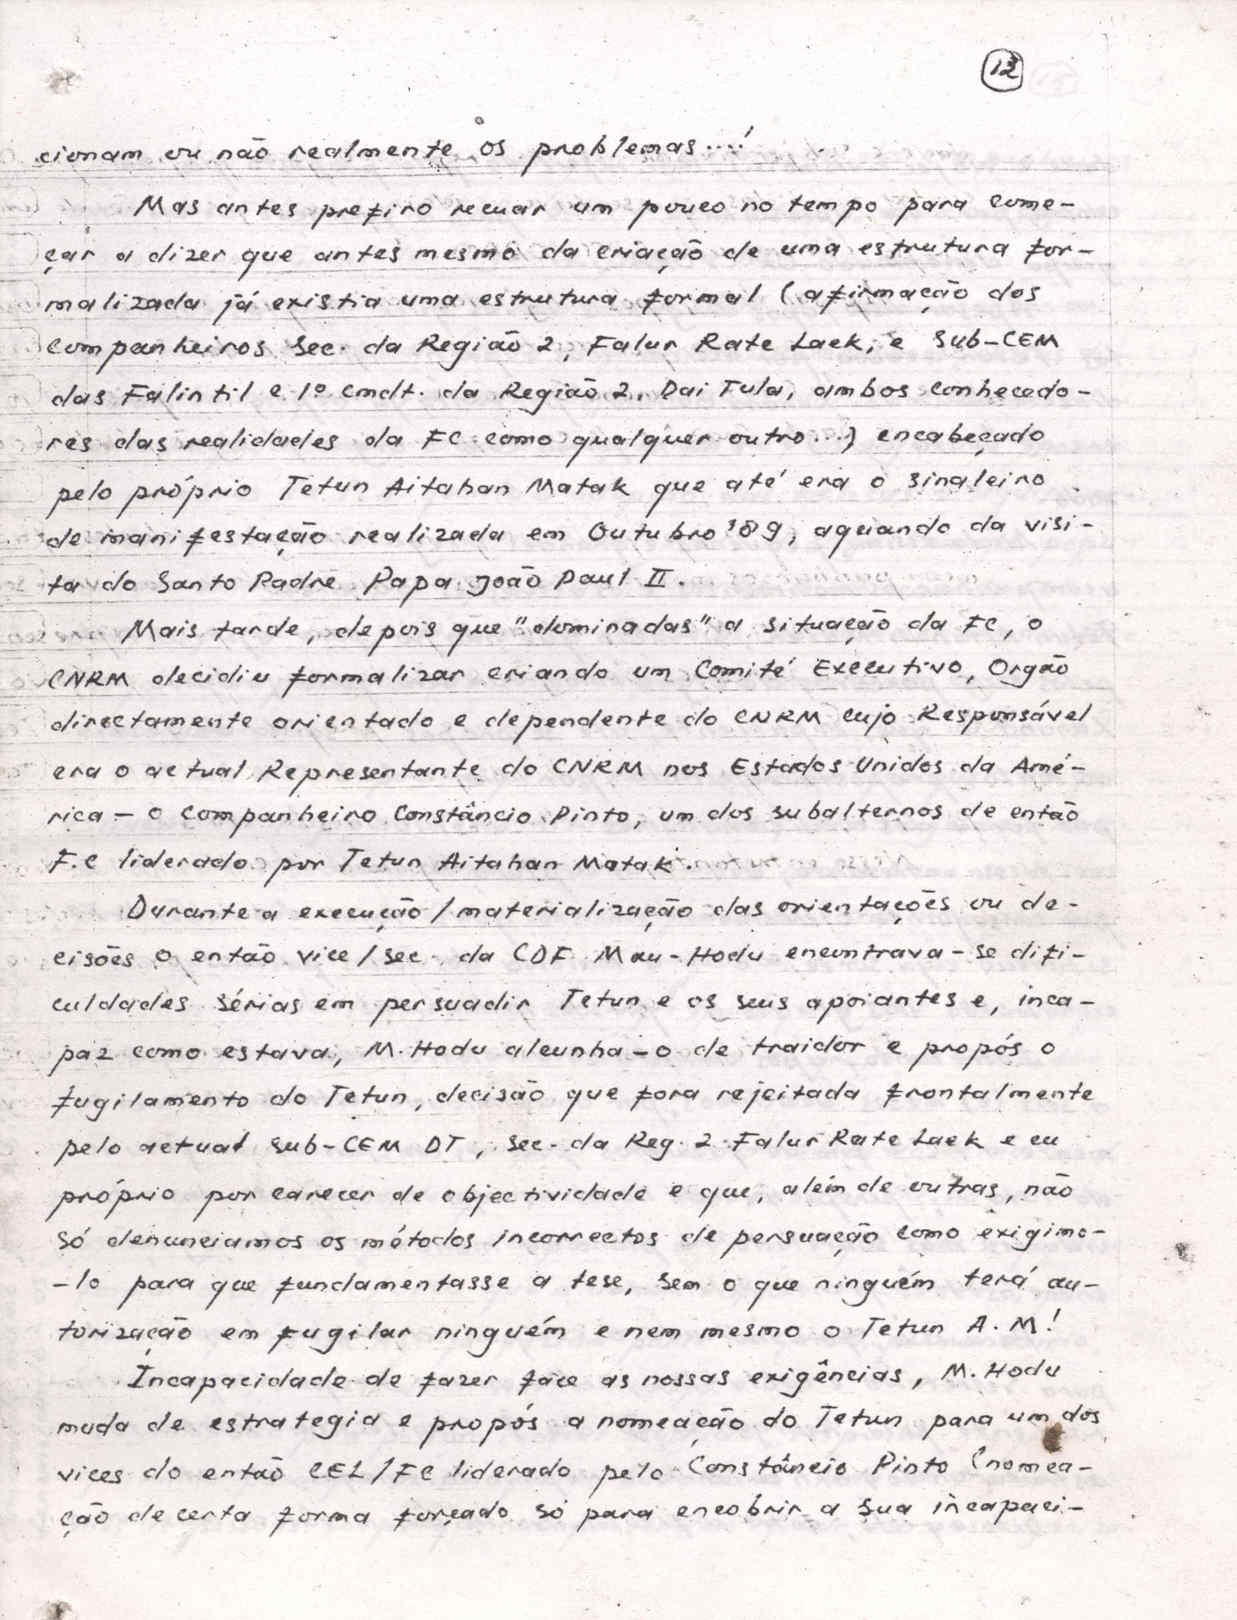 12
cionam ou não realmente os problemas...!
Mas antes prefiro recuar um pouco no tempo para come-
çar a dizer que antes mesmo da criação de uma estrutura for-
malizada já existia uma estrutura formal (afirmação dos
companheiros Sec. da Região 2, Falur Rate Laek, e Sub-CEM
das Falintil e 1º cmdt. da Região 2, Dai Tula, ambos conhecedo-
res das realidades da FC como qualquer outro...) encabeçado
pelo próprio Tetun Aitahan Matak que até era o sinaleiro
de manifestação realizada em Outubro '89, aquando da visi-
ta do Santo Padre Papa João Paul II.
Mais tarde, depois que "dominadas" a situação da FC, o
CNRM decidiu formalizar criando um Comité Executivo, Orgão
directamente orientado e dependente do CNRM cujo Responsável
era o actual Representante do CNRM nos Estados Unidos da Amé-
rica - o companheiro Constâncio Pinto, um dos subalternos de então
F.C liderado por Tetun Aitahan Matak.
Durante a execução/materialização das orientações ou de-
cisões o então vice/sec. da CDF Mau-Hodu encontrava-se difi-
culdades sérias em persuadir Tetun e os seus apoiantes e, inca-
paz como estava, M. Hodu alcunha-o de traidor e propós o
fugilamento do Tetun, decisão que fora rejeitada frontalmente
pelo actual Sub-CEM DT, Sec. da Reg. 2 Falur Rate Laek e eu
próprio por carecer de objectividade e que, além de outras, não
só denunciamos os métodos incorrectos de persuação como exigimo-
-lo para que fundamentasse a tese, sem o que ninguém terá au-
torização em fugilar ninguém e nem mesmo o Tetun A. M!
Incapacidade de fazer face as nossas exigências, M. Hodu
muda de estrategia e propós a nomeação do Tetun para um dos
vices do então CEL/FC liderado pelo Constâncio Pinto (nomea-
ção de certa forma forçado só para encobrir a sua incapaci-